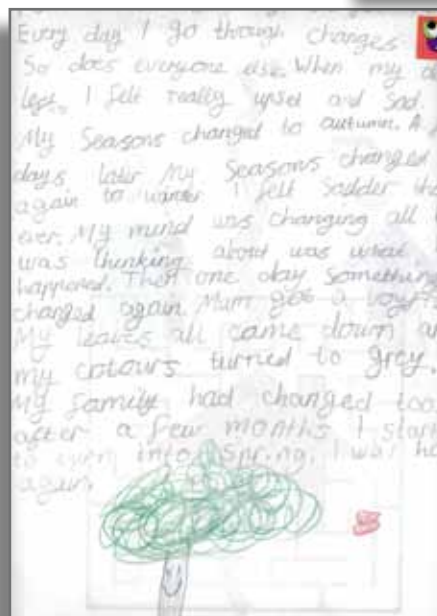 Every day I go through changes
So does everyone else. When my
left. I felt really upset and sad.
My Seasons changed to autumn. A
days later my Seasons changed
again to winter I felt sadder
ever. My mind was changing all
was thinking about was what
happened. Then one day Something
changed again. Mum got a
My leaves all came down
my colours turned to grey.
My family had changed too
after a few months I
to turn into Spring. I was
again.